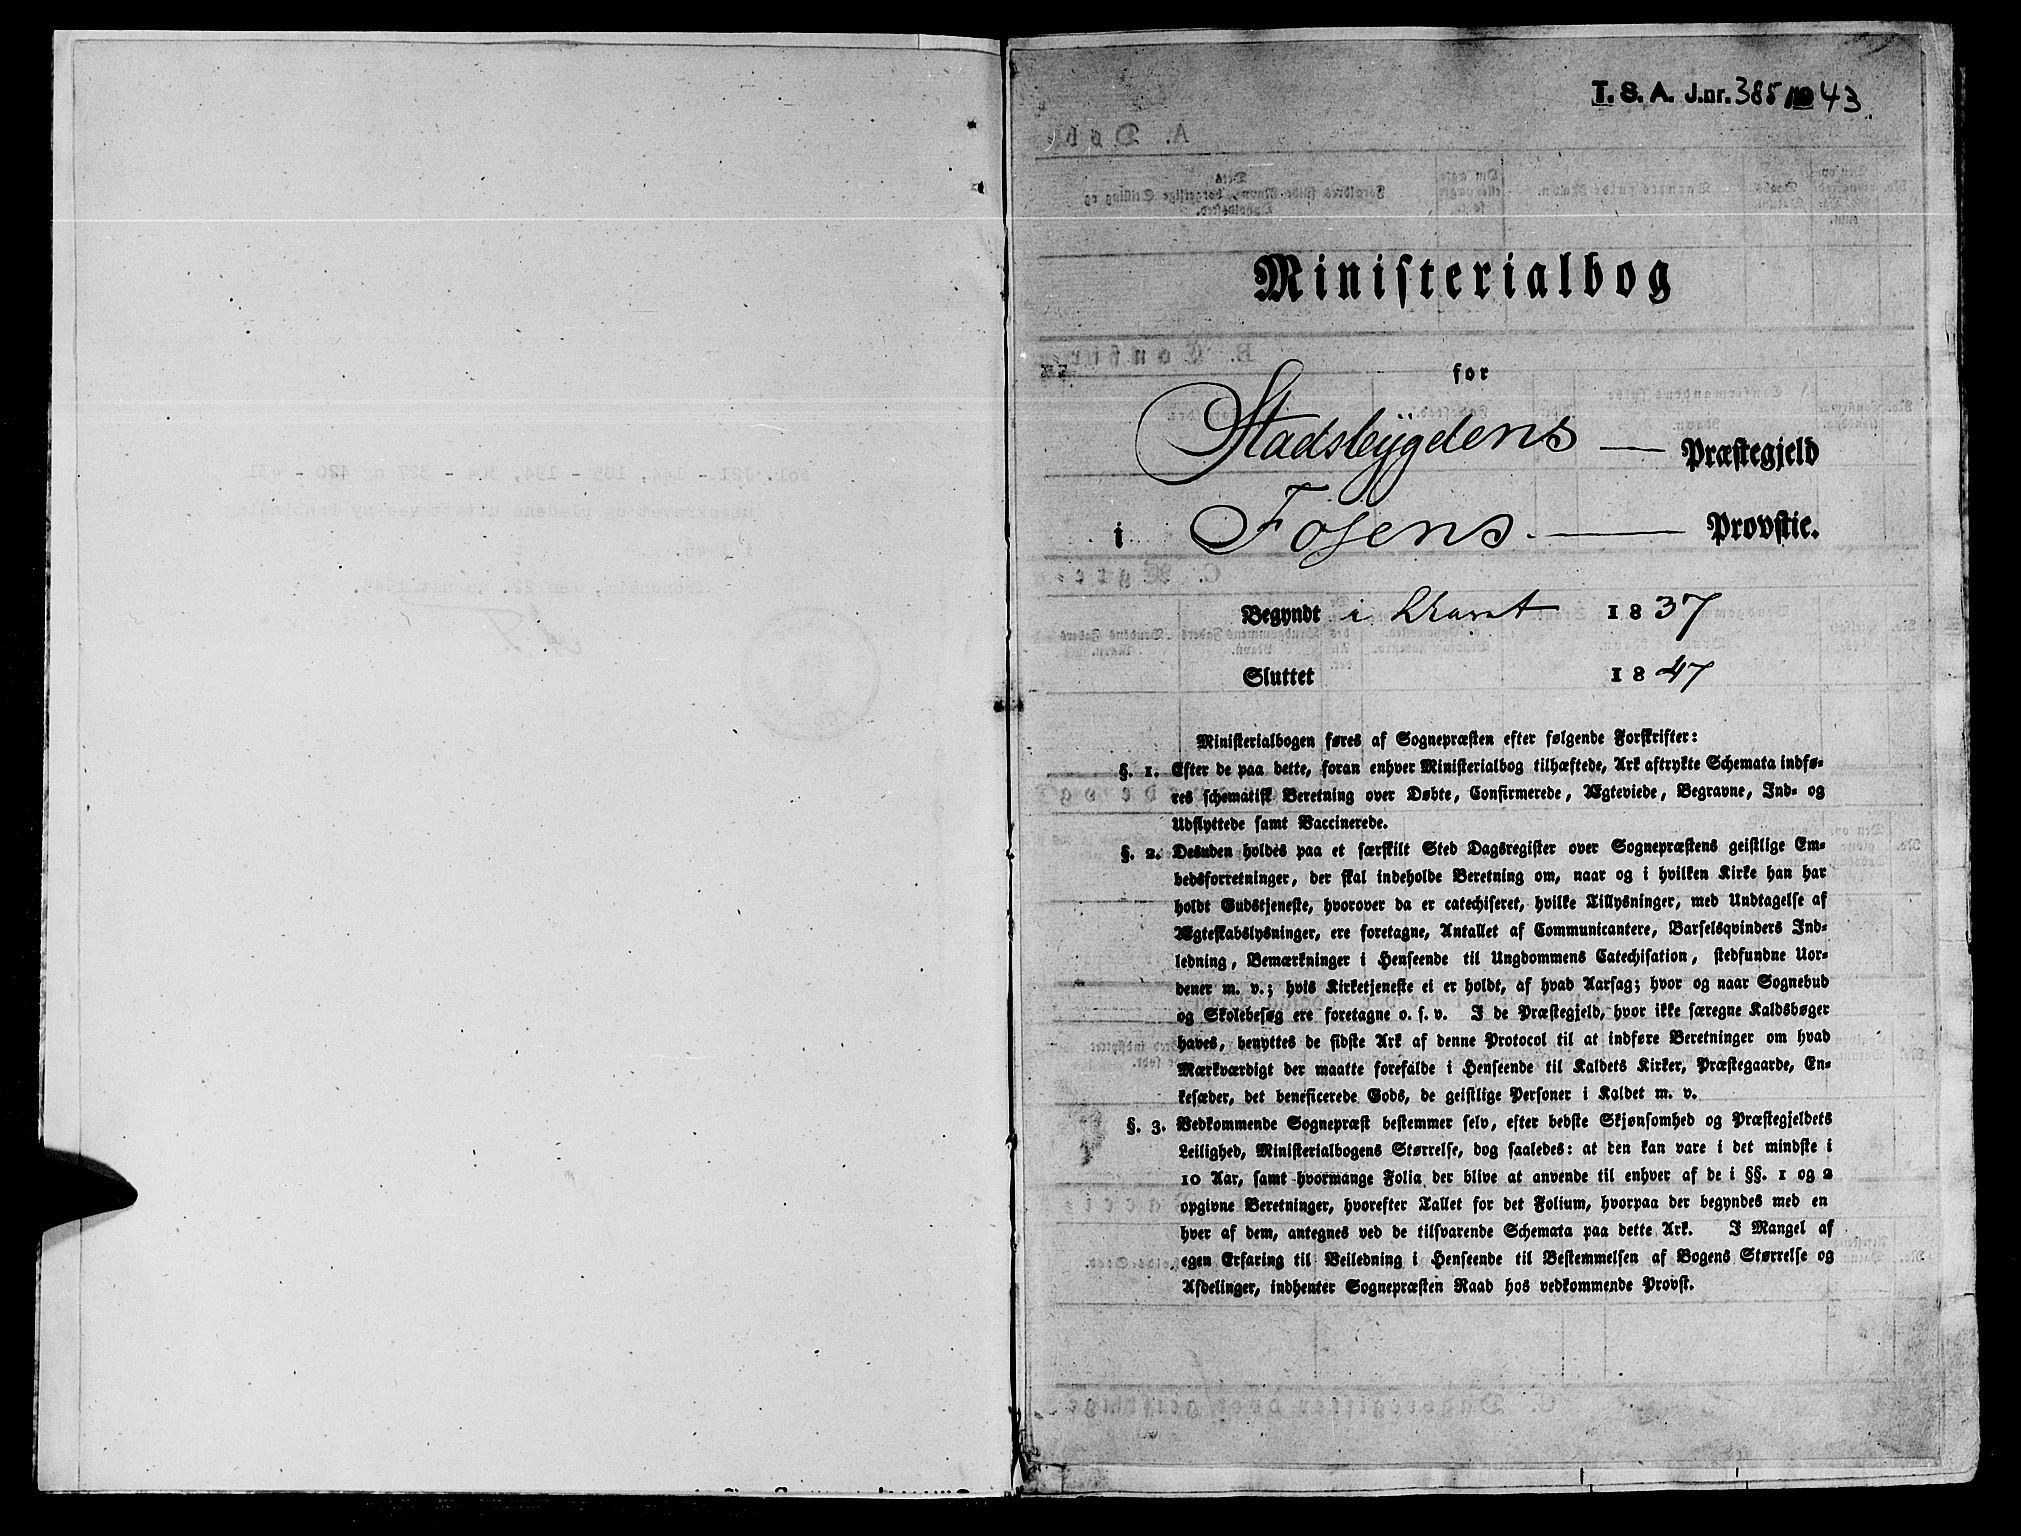 T. S. A. J.nr. 385 1943.
Ministerialbog
for
Stadsbygdens Præstegjeld
i Fosens Provstie.
Begyndt i 1837
Sluttet 1847
Ministerialbogen føres af Sognepræsten efter følgende Forskrifter:
§. 1. Efter de paa dette, foran enhver Ministerialbog tilhæftede, Ark aftrykte Schemata indfø-
res schematisk Beretning over Døbte, Confirmerede, Ægteviede, Begravne, Ind- og
Udflyttede samt Vaccinerede.
§. 2. Desuden holdes paa et særskilt Sted Dagsregister over Sognepræstens geistlige Em-
bedsforretninger, der skal indeholde Beretning om, naar og i hvilken Kirke han har
holdt Gudstjeneste, hvorover da er catechiseret, hvilke Tillysninger, med Undtagelse af
Ægteskabslysninger, ere foretagne, Antallet af Communicantere, Barselsqvinders Ind-
ledning, Bemærkninger i Henseende til Ungdommens Catechisation, stedfundne Uor-
dener m. v.; hvis Kirketjeneste ei er holdt, af hvad Aarsag; hvor og naar Sognebud
og Skolebesøg ere foretagne o. s. v. I de Præstegjeld, hvor ikke særegne Kaldsbøger
haves, benyttes de sidste Ark af denne Protocol til at indføre Beretninger om hvad
Mærkværdigt der maatte forefalde i Henseende til Kaldets Kirker, Præstegaarde, En-
kesæder, det beneficerede Gods, de geistlige Personer i Kaldet m. v.
§. 3. Vedkommende Sognepræst bestemmer selv, efter bedste Skjønsomhed og Præstegjeldets
Leilighed, Ministerialbogens Størrelse, dog saaledes: at den kan vare i det mindste i
10 Aar, samt hvormange Folia der blive at anvende til enhver af de i §§. 1 og 2
opgivne Beretninger, hvorefter Tallet for det Folium, hvorpaa der begyndes med en
hver af dem, antegnes ved de tilsvarende Schemata paa dette Ark. I Mangel af
egen Erfaring til Veiledning i Henseende til Bestemmelsen af Bogens Størrelse og
Afdelinger, indhenter Sognepræsten Raad hos vedkommende Provst.